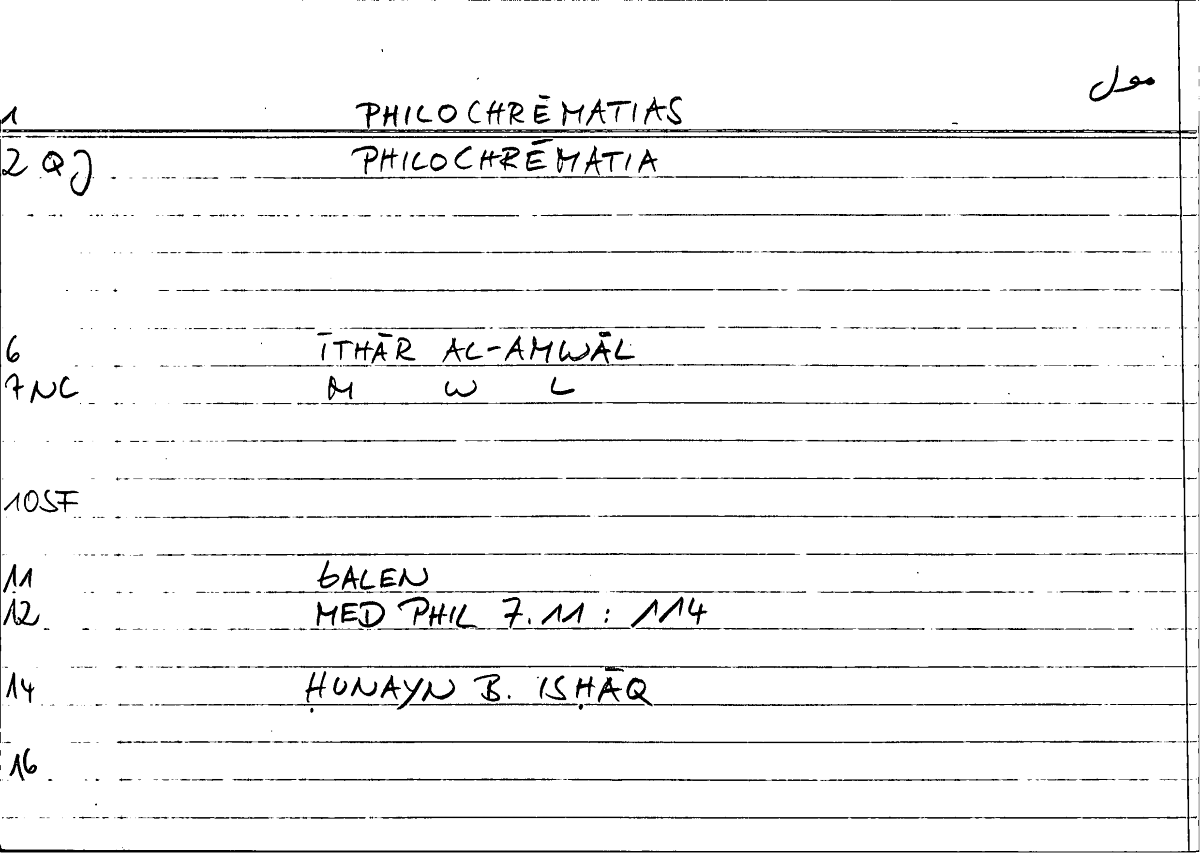 مول
1 PHILOCHRĒMATIAS
2 QJ PHILOCHRĒMATIA
6 ĪTHĀR AL-AMWĀL
7 NC M W L
10SF
11 GALEN
12 MED PHIL 7.11 : 114
14 ḤUNAYN B. ISḤĀQ
16